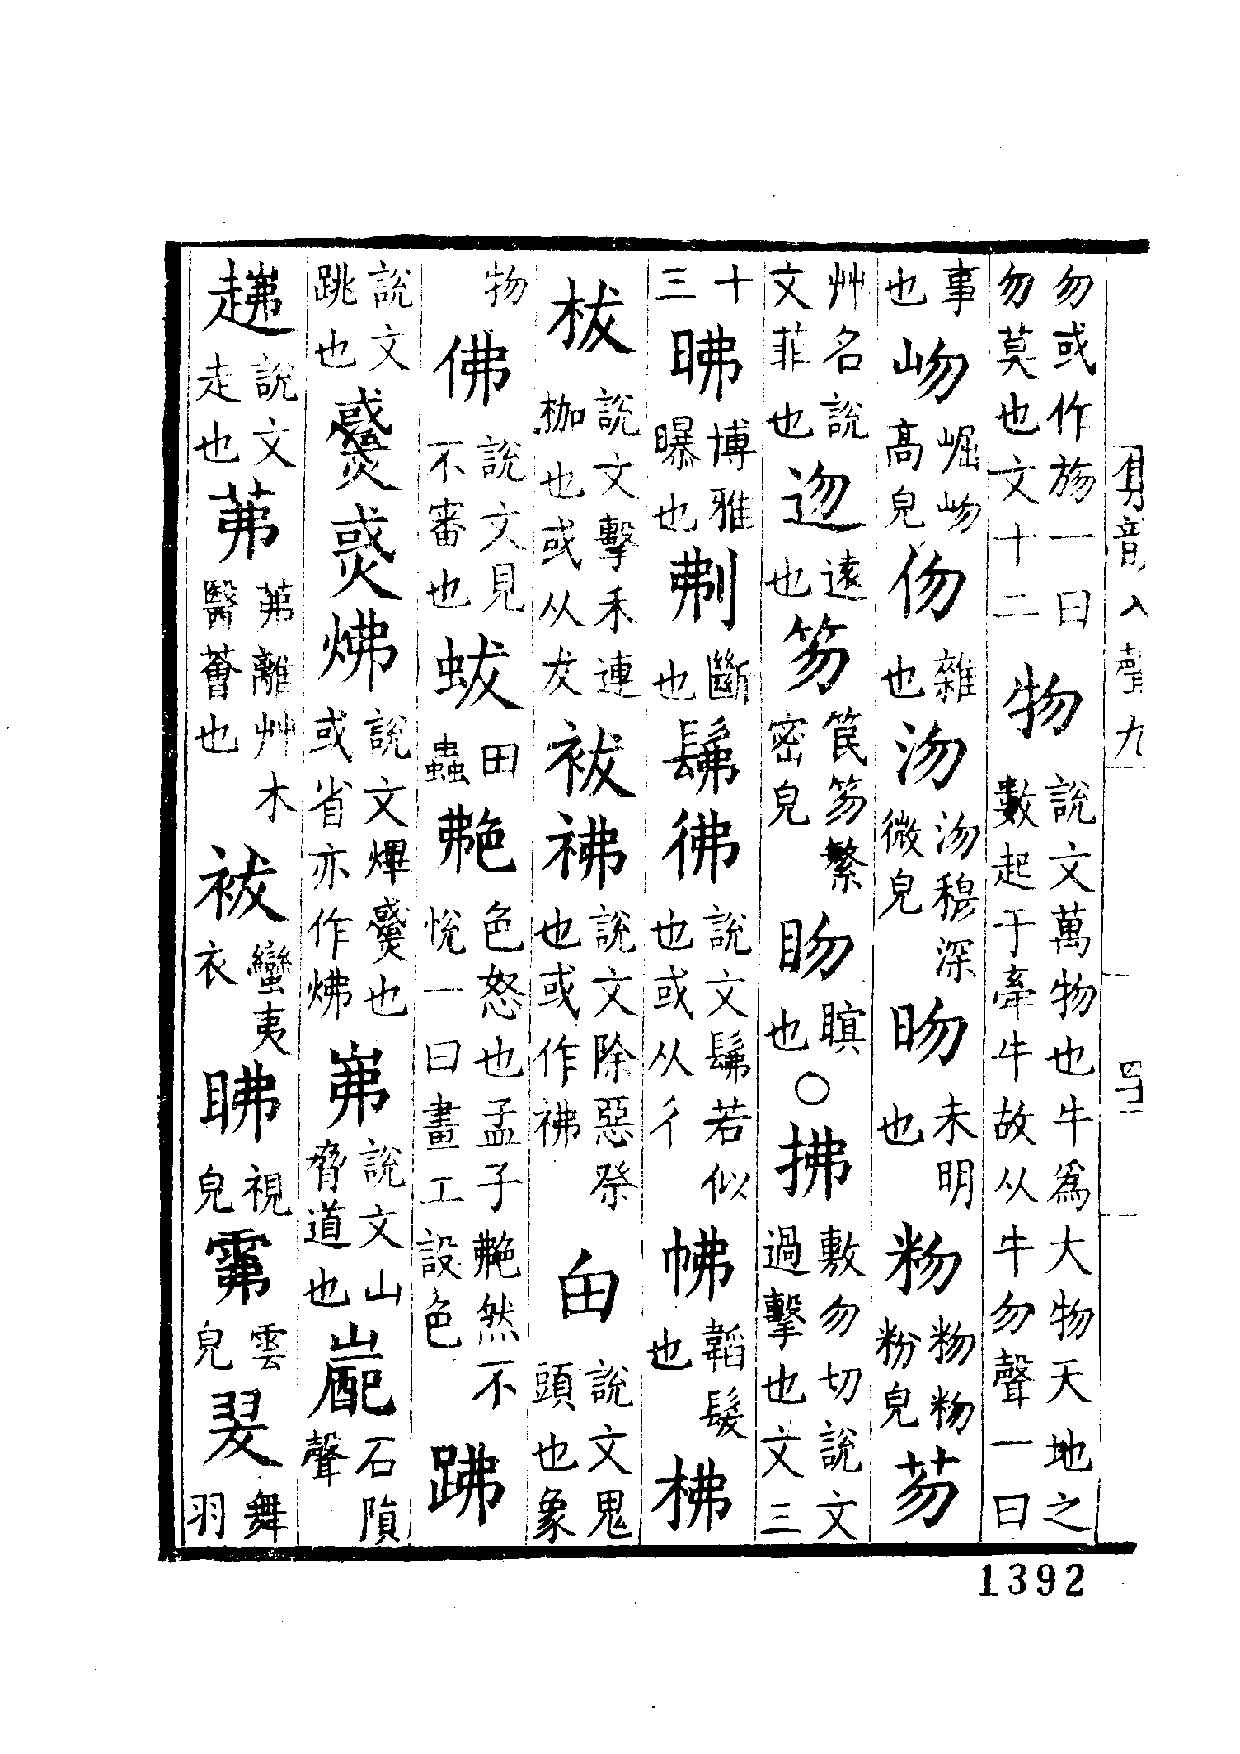 勿或作㫚一曰勿莫也文十二物說文萬物也牛爲大物天地之數起于牽牛故从牛勿聲一曰
事也岉崛岉高皃伆離也沕沕穆深微皃昒未明也粅粅粅粉皃芴
艸名說文菲也遠也笏笢笏繁密皃瞑也○拂敷勿切說文過擊也文三
十三昲博雅曝也刜斷也髴彿說文髴若似也或从彳韜髮也柫
柭說文擊禾連枷也或从犮祓說文除惡祭也或作甶說文鬼頭也象
物佛說文見不審也蛂田蟲艴色怒也孟子艴然不悅一曰畫工設色
說文跳也炥說文燡也或省亦作炥岪說文山脅道也石隕聲
說文走也茀茀離艸木翳薈也袚蠻夷衣視皃雲皃翇舞羽
集韻入聲九
1392